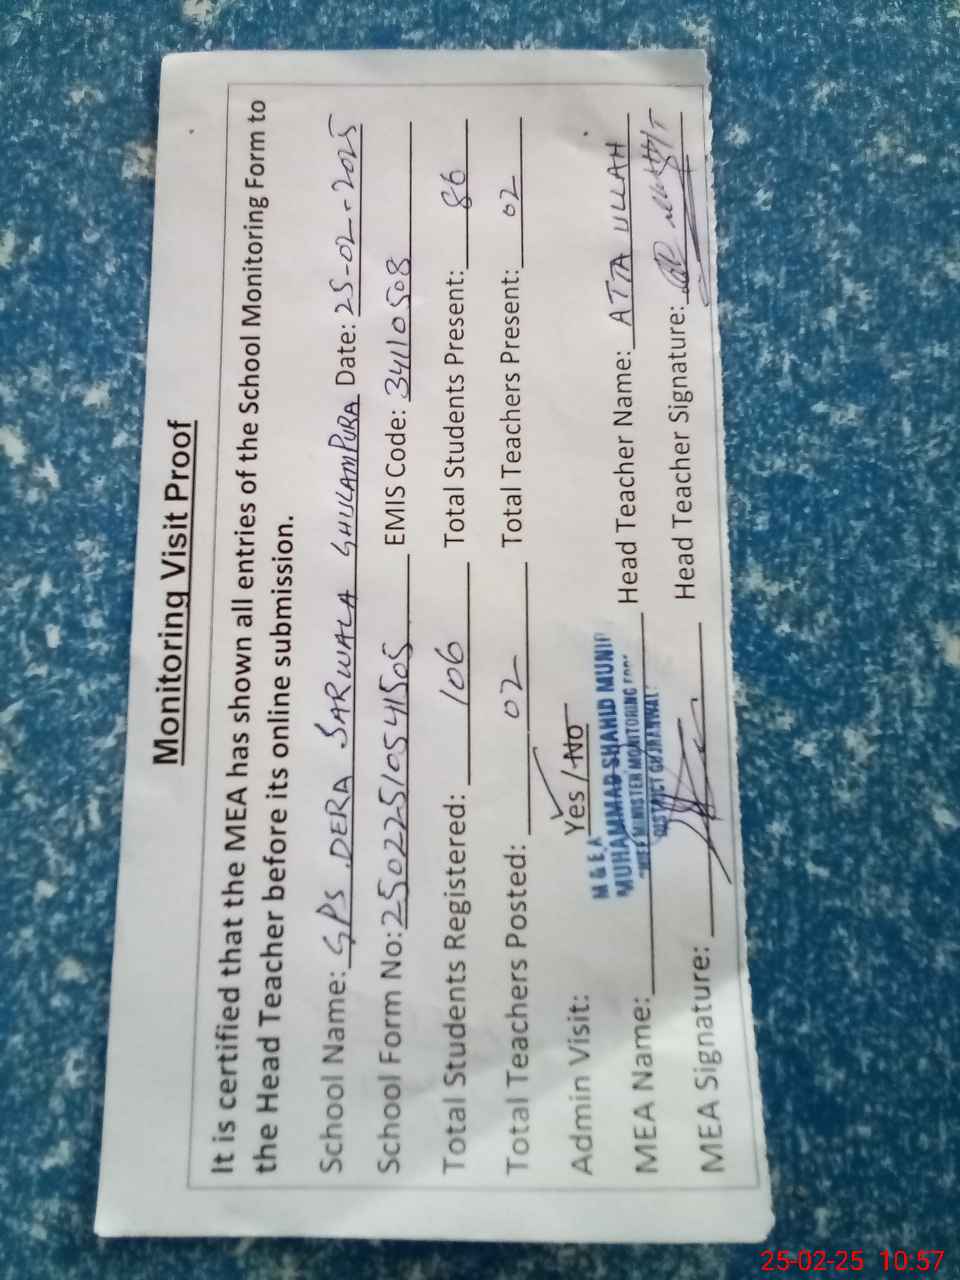 Monitoring Visit Proof
It is certified that the MEA has shown all entries of the School Monitoring Form to
the Head Teacher before its online submission.
School Name: GPS DERA SARWALA GHULAMPURA Date: 25-02-2025
School Form No: 25022510541505 EMIS Code: 34110508
Total Students Registered: 106 Total Students Present: 86
Total Teachers Posted: 02 Total Teachers Present: 02
Admin Visit: Yes / No
M & E A
MUHAMMAD SHAHID MUNIR
CHIEF MINISTER MONITORING
DISTRICT GUJRANWALA
MEA Name: Head Teacher Name: ATTA ULLAH
MEA Signature: Head Teacher Signature:
25-02-25 10:57